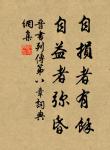 自損者有餘
自益者弥昏
晉書列傳第八章詞典
網集